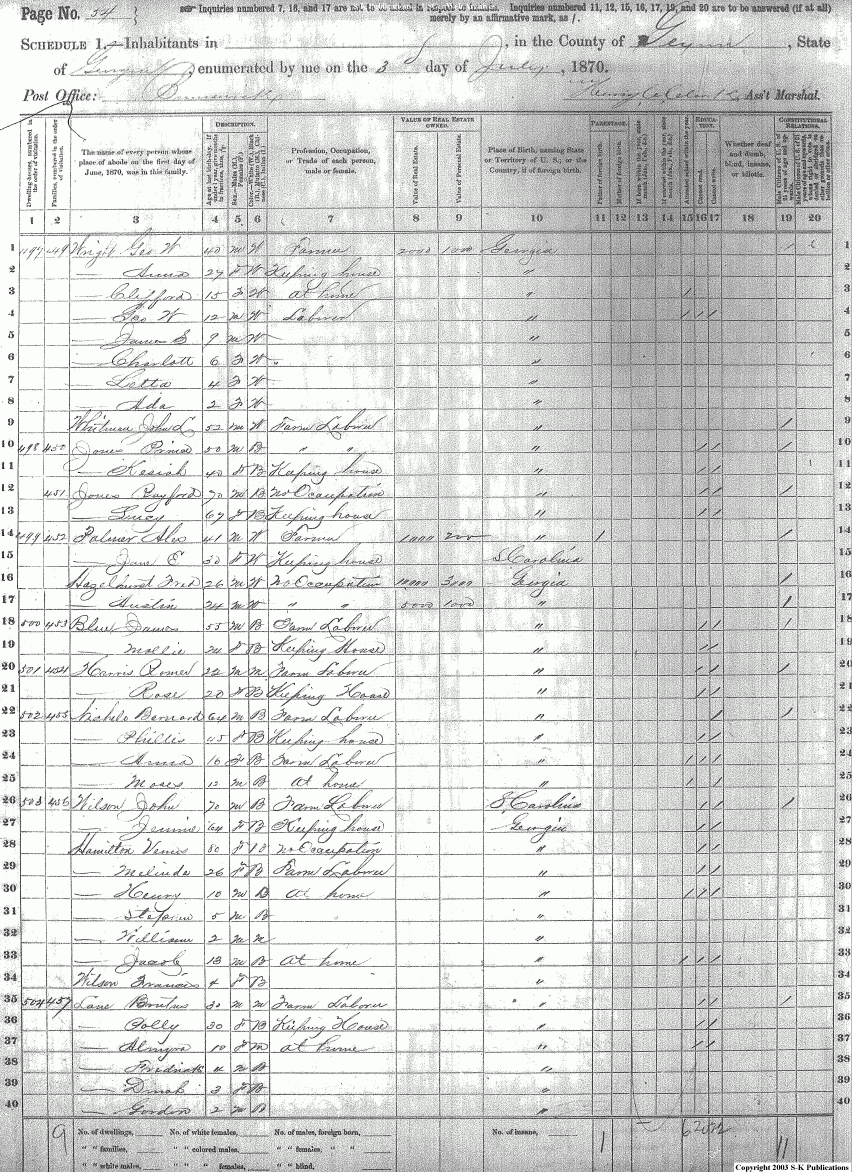 Page No. 54
Inquiries numbered 7, 16, and 17 are not to be asked in respect to infants. Inquiries numbered 11, 12, 15, 16, 17, 19, and 20 are to be answered (if at all)
merely by an affirmative mark, as /.
SCHEDULE 1.—Inhabitants in , in the County of Glynn, State
of Georgia, enumerated by me on the 3 day of July, 1870.
Post Office: Brunswick Ass't Marshal.
DESCRIPTION. VALUE OF REAL ESTATE OWNED. PARENTAGE. EDUCATION. CONSTITUTIONAL RELATIONS.
Dwelling-houses, numbered in the order of visitation.
Families, numbered in the order of visitation.
The name of every person whose place of abode on the first day of June, 1870, was in this family.
Profession, Occupation, or Trade of each person, male or female.
Value of Real Estate.
Value of Personal Estate.
Place of Birth, naming State or Territory of U. S.; or the Country, if of foreign birth.
Father of foreign birth.
Mother of foreign birth.
Whether deaf and dumb, blind, insane, or idiotic.
1 2 3 4 5 6 7 8 9 10 11 12 13 14 15 16 17 18 19 20
1 497 449 Wright Geo W 40 m W Farmer 2000 1000 Georgia / 1
2 — Anna 27 F W Keeping house " 2
3 — Clifford 15 F W at home " / 3
4 — Geo W 12 m W Laborer " / / / 4
5 — James S 9 m W " 5
6 — Charlott 6 F W " 6
7 — Letta 4 F W " 7
8 — Ada 2 F W " 8
9 Whitman John L 52 m W Farm Laborer " / 9
10 498 450 Jones Prince 50 m B " " " / / / 10
11 — Kesiah 40 F B Keeping house " / / 11
12 451 Jones Bayford 70 m B No Occupation " / / / 12
13 — Lucy 67 F B Keeping house " / / 13
14 499 452 Palmer Alex 41 m W Farmer 1000 200 " / / 14
15 — Jane E 30 F W Keeping house S Carolina 15
16 Hazelhurst Fred 26 m W No Occupation 10000 3000 Georgia / 16
17 — Austin 24 m W " " 5000 1000 " / 17
18 500 453 Blue James 55 m B Farm Laborer " / / / 18
19 — Mollie F B Keeping House " / / 19
20 501 454 Harris Romeo 22 m m Farm Laborer " / / / 20
21 — Rose 20 F B Keeping House " / / 21
22 502 455 Bernard 64 m B Farm Laborer " / / 22
23 — Phillis 45 F B Keeping house " / / 23
24 — Anna 16 F B Farm Laborer " / / / 24
25 — Moses 12 m B at home " / / / 25
26 503 456 Wilson John 70 m B Farm Laborer S Carolina / / / 26
27 — Jennie 64 F B Keeping house Georgia / / 27
28 Hamilton Venus 80 F B No Occupation " / / 28
29 — Melinda 26 F B Farm Laborer " / / 29
30 — Henry 10 m B at home " / / / 30
31 — Stephen 5 m B " 31
32 — William 2 m m " 32
33 — Jacob 13 m B at home " / / / 33
34 Wilson Francis 4 F B " 34
35 504 457 Lane Brutus 30 m m Farm Laborer " / / / 35
36 — Polly 30 F B Keeping House " / / 36
37 — Almyra 10 F m at home " / / 37
38 — Fredrick m B " 38
39 — Dinah 3 F B " 39
40 — Gordon 2 m B " 40
9 No. of dwellings, No. of white females, No. of males, foreign born, No. of insane, 1 11
" " families, " " colored males, " " females, " "
" " white males, " " " females, " " blind,
Copyright 2003 S-K Publications